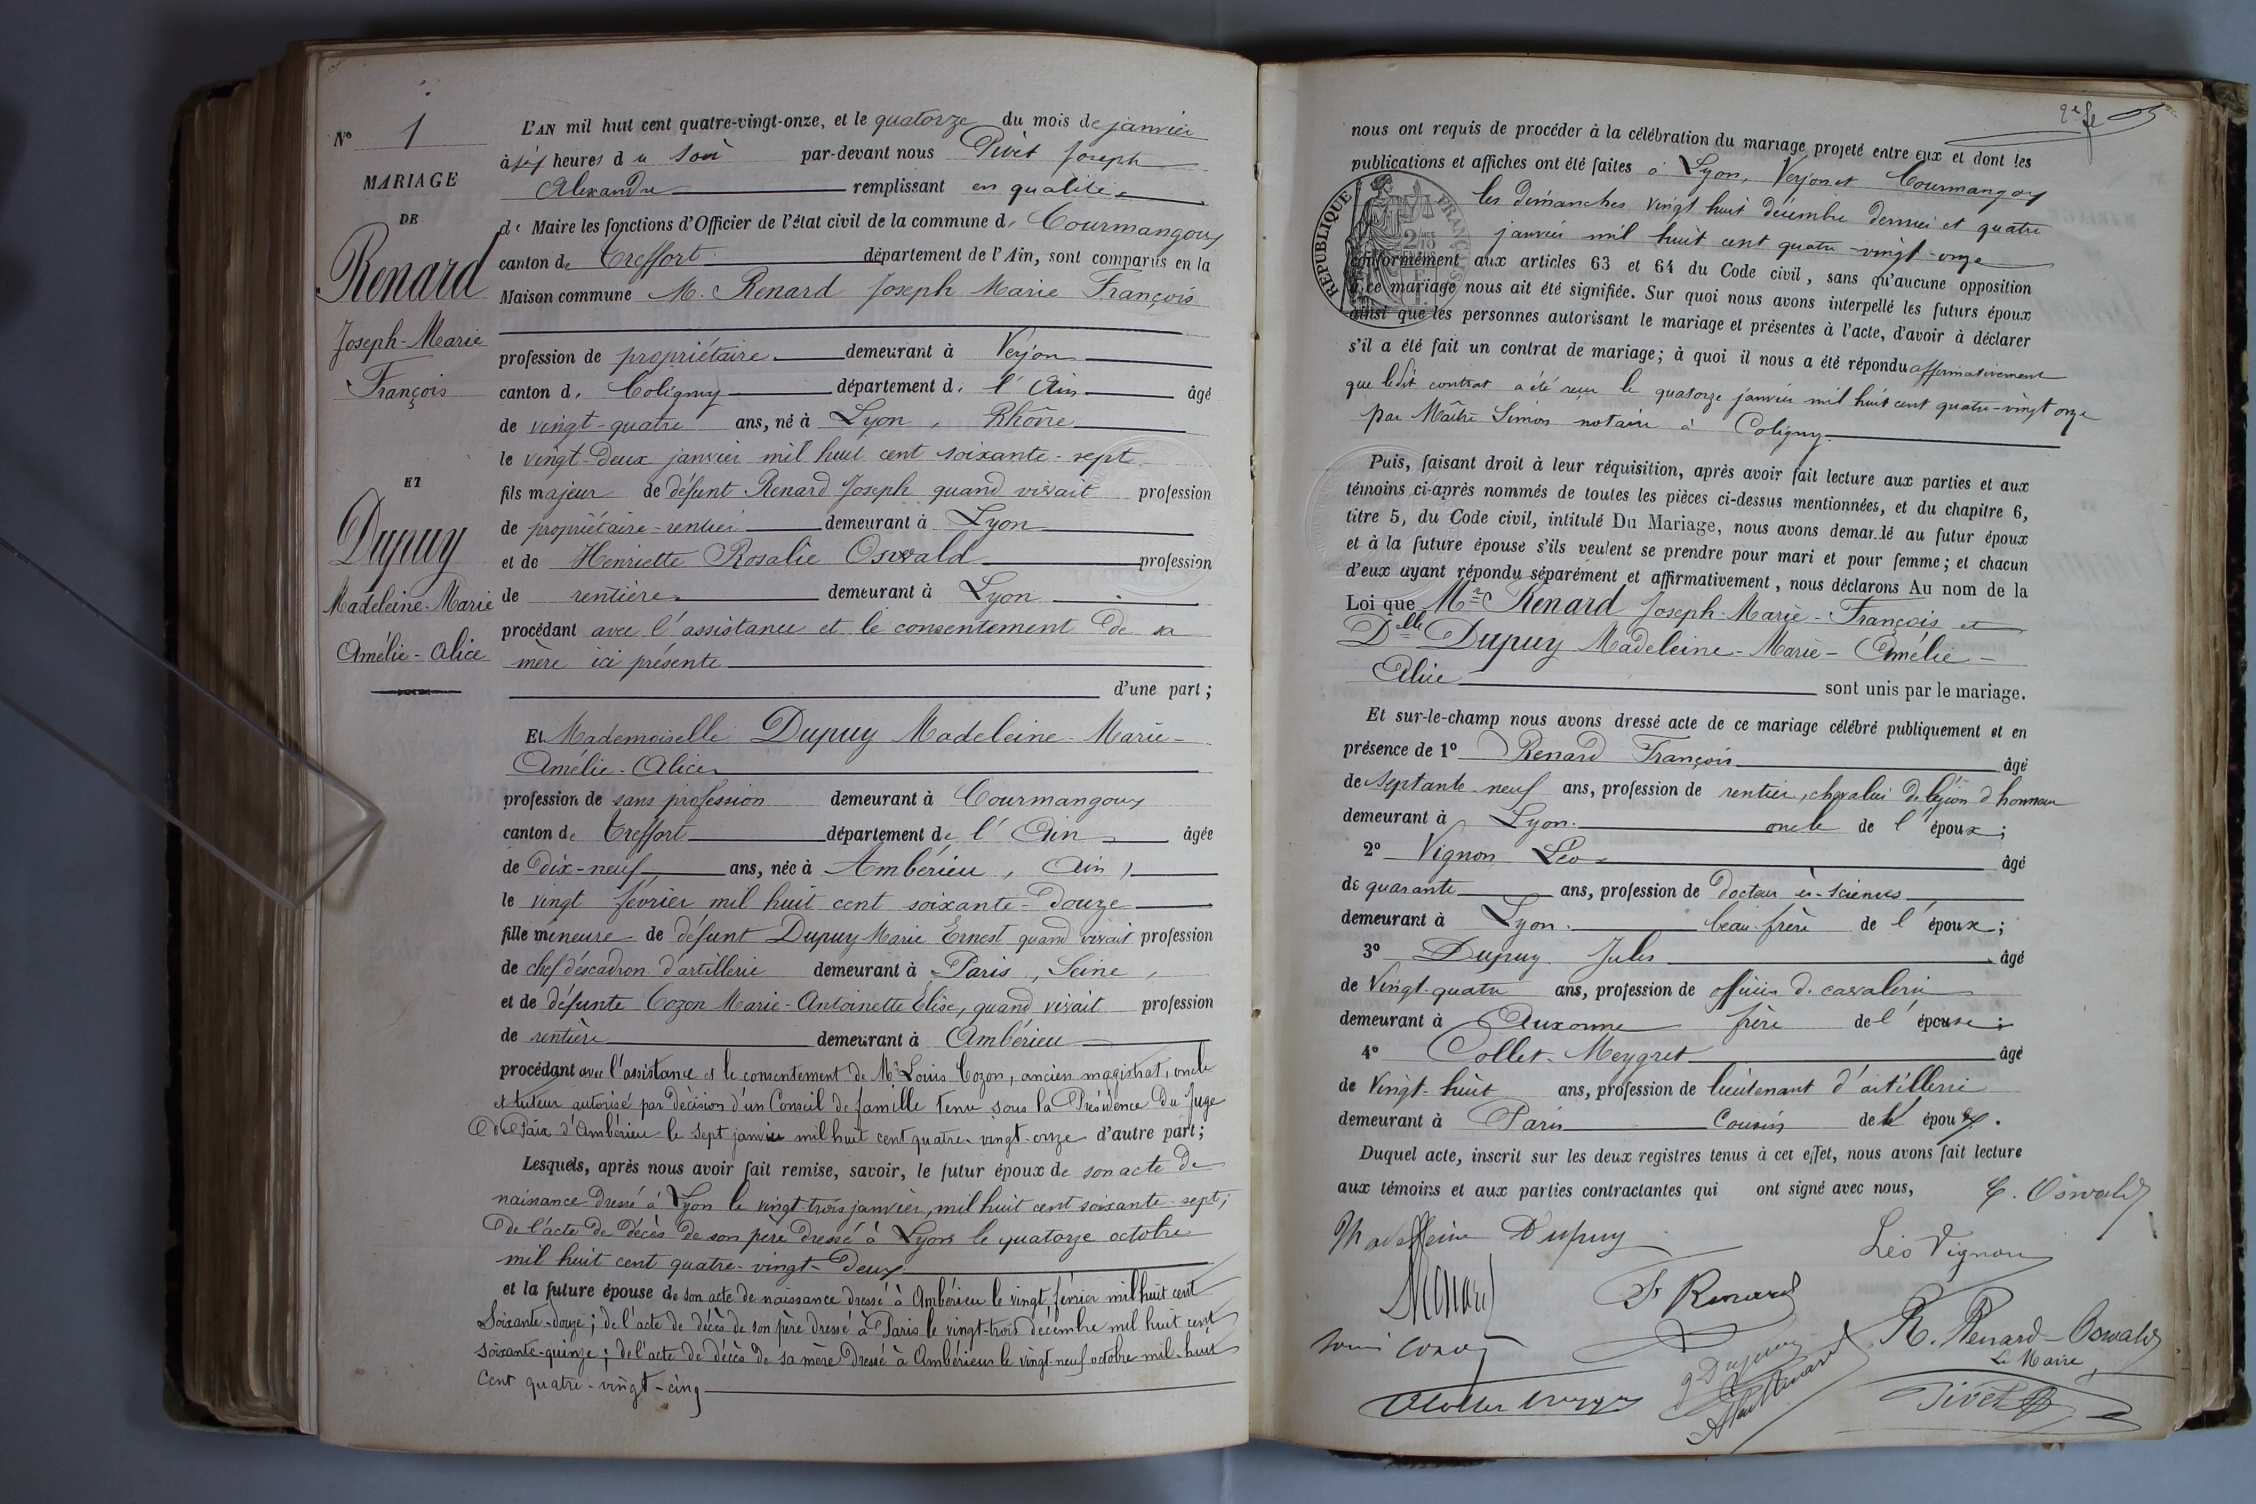 N° 1
MARIAGE
DE
Renard
Joseph-Marie
François
ET
Dupuy
Madeleine-Marie
Amélie-Alice
L'AN mil huit cent quatre-vingt-onze, et le quatorze du mois de janvier
à six heures du soir par-devant nous Pivet Joseph
Alexandre remplissant en qualité
de Maire les fonctions d'Officier de l'état civil de la commune de Courmangoux
canton de Treffort département de l'Ain, sont comparus en la
Maison commune M. Renard Joseph Marie François
profession de propriétaire demeurant à Verjon
canton de Coligny département de l'Ain âgé
de vingt-quatre ans, né à Lyon, Rhône
le vingt-deux janvier mil huit cent soixante-sept
fils majeur de défunt Renard Joseph quand vivait profession
de propriétaire-rentier demeurant à Lyon
et de Henriette Rosalie Oswald profession
de rentière demeurant à Lyon
procédant avec l'assistance et le consentement de sa
mère ici présente
d'une part;
Et Mademoiselle Dupuy Madeleine-Marie-
Amélie-Alice
profession de sans profession demeurant à Courmangoux
canton de Treffort département de l'Ain âgée
de dix-neuf ans, née à Ambérieu, Ain,
le vingt février mil huit cent soixante-douze
fille mineure de défunt Dupuy Marie Ernest quand vivait profession
de chef d'escadron d'artillerie demeurant à Paris, Seine,
et de défunte Cozon Marie-Antoinette Elise, quand vivait profession
de rentière demeurant à Ambérieu
procédant avec l'assistance et le consentement de Mr Louis Cozon, ancien magistrat, oncle
et tuteur autorisé par décision d'un Conseil de famille tenu sous la Présidence du Juge
de Paix d'Ambérieu le sept janvier mil huit cent quatre-vingt-onze d'autre part;
Lesquels, après nous avoir fait remise, savoir, le futur époux de son acte de
naissance dressé à Lyon le vingt-trois janvier, mil huit cent soixante-sept;
de l'acte de décès de son père dressé à Lyon le quatorze octobre
mil huit cent quatre-vingt-deux
et la future épouse de son acte de naissance dressé à Ambérieu le vingt février mil huit cent
soixante-douze; de l'acte de décès de son père dressé à Paris le vingt-trois décembre mil huit cent
soixante-quinze; de l'acte de décès de sa mère dressé à Ambérieu le vingt-neuf octobre mil-huit
cent quatre-vingt-cinq
2e f
nous ont requis de procéder à la célébration du mariage projeté entre eux et dont les
publications et affiches ont été faites à Lyon, Verjon et Courmangoux
les dimanches vingt huit décembre dernier et quatre
janvier mil huit cent quatre-vingt-onze
RÉPUBLIQUE FRANÇAISE
conformément aux articles 63 et 64 du Code civil, sans qu'aucune opposition
à ce mariage nous ait été signifiée. Sur quoi nous avons interpellé les futurs époux
ainsi que les personnes autorisant le mariage et présentes à l'acte, d'avoir à déclarer
s'il a été fait un contrat de mariage; à quoi il nous a été répondu affirmativement
que ledit contrat a été reçu le quatorze janvier mil huit cent quatre-vingt onze
par Maître Simon notaire à Coligny.
Puis, faisant droit à leur réquisition, après avoir fait lecture aux parties et aux
témoins ci-après nommés de toutes les pièces ci-dessus mentionnées, et du chapitre 6,
titre 5, du Code civil, intitulé Du Mariage, nous avons demandé au futur époux
et à la future épouse s'ils veulent se prendre pour mari et pour femme; et chacun
d'eux ayant répondu séparément et affirmativement, nous déclarons Au nom de la
Loi que Mr Renard Joseph-Marie-François et
Dlle Dupuy Madeleine-Marie-Amélie-
Alice sont unis par le mariage.
Et sur-le-champ nous avons dressé acte de ce mariage célébré publiquement et en
présence de 1° Renard François âgé
de septante-neuf ans, profession de rentier, chevalier de légion d'honneur
demeurant à Lyon. oncle de l'époux;
2° Vignon Léo âgé
de quarante ans, profession de docteur ès-sciences
demeurant à Lyon. beau-frère de l'époux;
3° Dupuy Jules âgé
de Vingt-quatre ans, profession de officier de cavalerie
demeurant à Auxonne frère de l'épouse;
4° Collet-Meygret âgé
de Vingt-huit ans, profession de lieutenant d'artillerie
demeurant à Paris cousin de l'époux.
Duquel acte, inscrit sur les deux registres tenus à cet effet, nous avons fait lecture
aux témoins et aux parties contractantes qui ont signé avec nous,
Oswald
Madeleine Dupuy
Léo Vignon
Renard
F Renard
Louis Cozon
R. Renard-Oswald
Dupuy
Le Maire,
Pivet